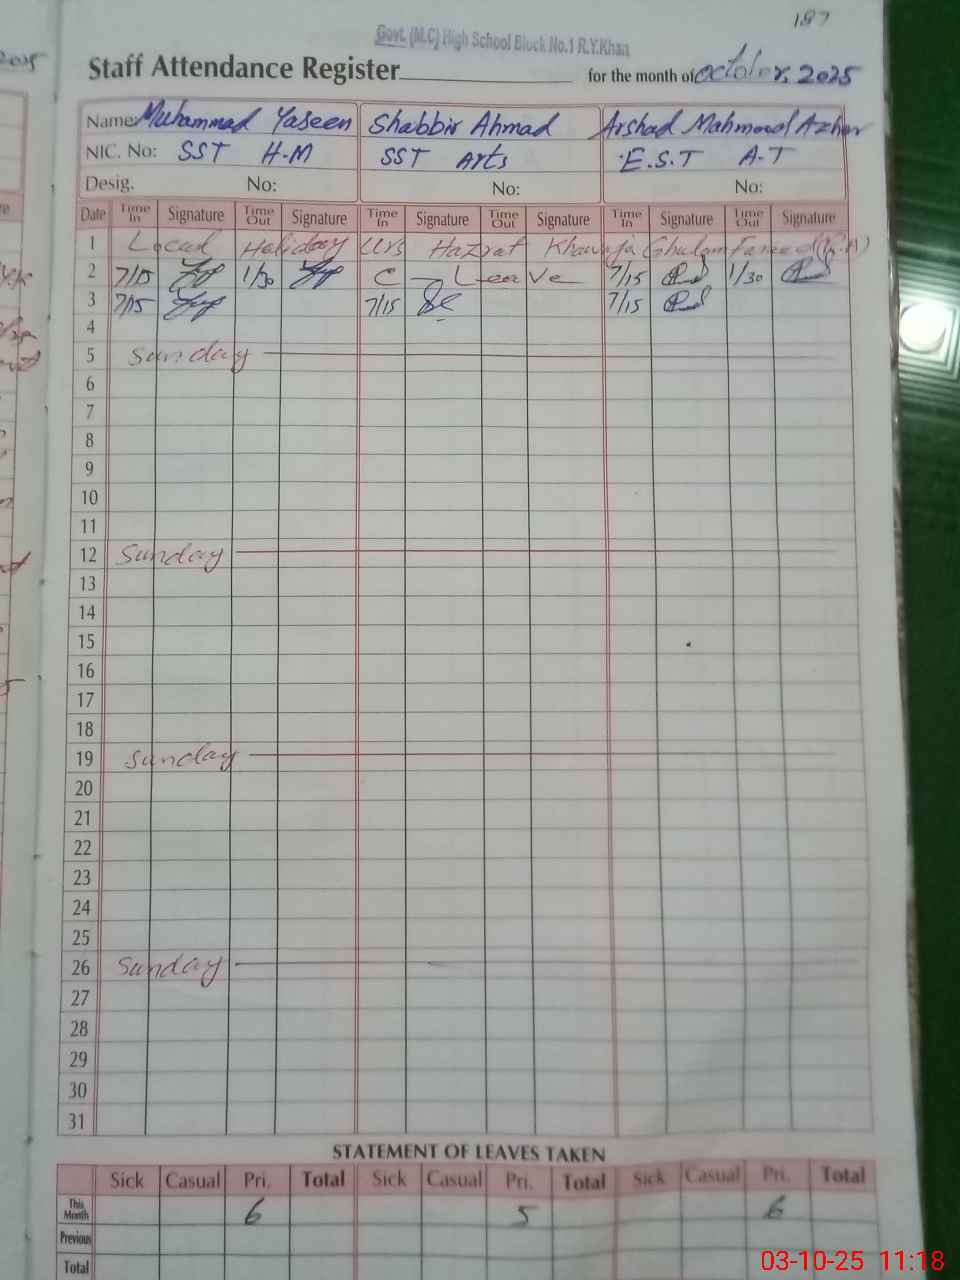 187
Govt. (M.C) High School Block No.1 R.Y.Khan
2025
Staff Attendance Register for the month of October, 2025
Name: Muhammad Yaseen Shabbir Ahmad Arshad Mahmood Azhar
NIC. No: SST H-M SST Arts E.S.T A-T
Desig. No: No: No:
Date Time In Signature Time Out Signature Time In Signature Time Out Signature Time In Signature Time Out Signature
1 Local Holiday Urs Hazrat Khawaja Ghulam Fareed (R.A)
2 7/15 1/30 C - Leave 7/15 1/30
3 7/15 7/15 7/15
4
5 Sunday
6
7
8
9
10
11
12 Sunday
13
14
15
16
17
18
19 Sunday
20
21
22
23
24
25
26 Sunday
27
28
29
30
31
STATEMENT OF LEAVES TAKEN
Sick Casual Pri. Total Sick Casual Pri. Total Sick Casual Pri. Total
This Month 6 5 6
Previous
Total
03-10-25 11:18